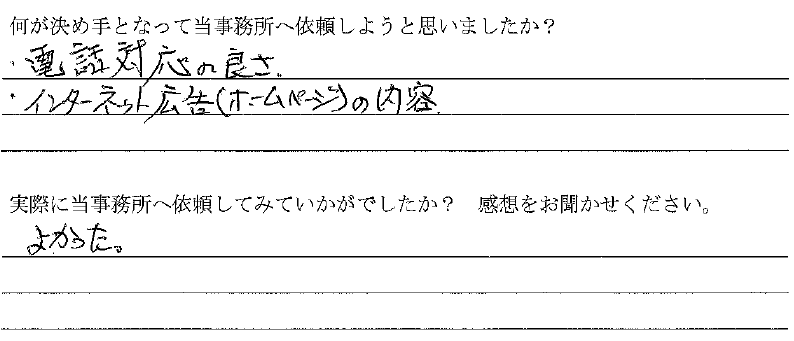 何が決め手となって当事務所へ依頼しようと思いましたか？
・電話対応の良さ.
・インターネット広告(ホームページ)の内容.
実際に当事務所へ依頼してみていかがでしたか？　感想をお聞かせください。
よかった。